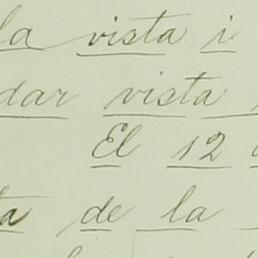 la vista i
dar vista
El 12
de la